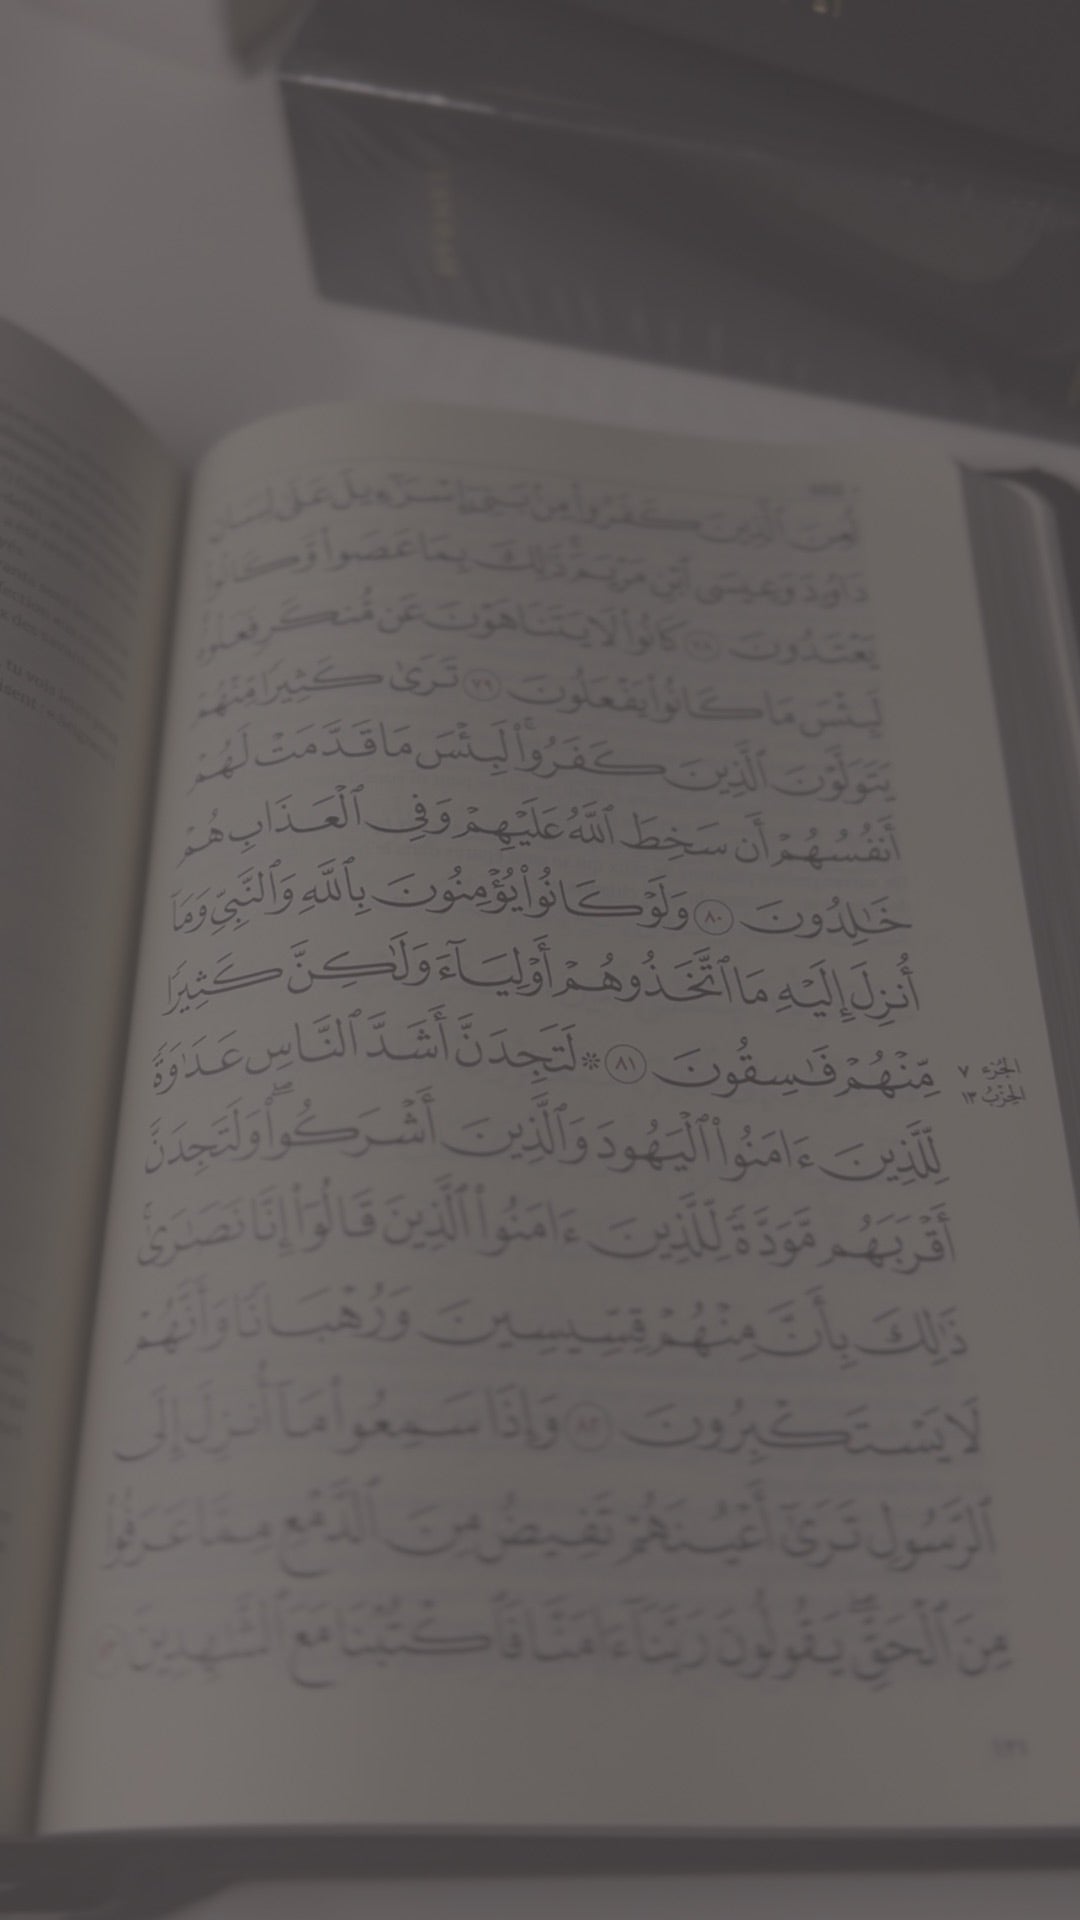 لُعِنَ ٱلَّذِينَ كَفَرُوا۟ مِنۢ بَنِىٓ إِسْرَٰٓءِيلَ عَلَىٰ لِسَانِ
دَاوُۥدَ وَعِيسَى ٱبْنِ مَرْيَمَ ۚ ذَٰلِكَ بِمَا عَصَوا۟ وَّكَانُوا۟
يَعْتَدُونَ ٧٨ كَانُوا۟ لَا يَتَنَاهَوْنَ عَن مُّنكَرٍ فَعَلُوهُ
لَبِئْسَ مَا كَانُوا۟ يَفْعَلُونَ ٧٩ تَرَىٰ كَثِيرًا مِّنْهُمْ
يَتَوَلَّوْنَ ٱلَّذِينَ كَفَرُوا۟ ۚ لَبِئْسَ مَا قَدَّمَتْ لَهُمْ
أَنفُسُهُمْ أَن سَخِطَ ٱللَّهُ عَلَيْهِمْ وَفِى ٱلْعَذَابِ هُمْ
خَٰلِدُونَ ٨٠ وَلَوْ كَانُوا۟ يُؤْمِنُونَ بِٱللَّهِ وَٱلنَّبِىِّ وَمَآ
أُنزِلَ إِلَيْهِ مَا ٱتَّخَذُوهُمْ أَوْلِيَآءَ وَلَٰكِنَّ كَثِيرًا
مِّنْهُمْ فَٰسِقُونَ ٨١ ۞ لَتَجِدَنَّ أَشَدَّ ٱلنَّاسِ عَدَٰوَةً
الجُزْءُ ٧
الحِزْبُ ١٣
لِّلَّذِينَ ءَامَنُوا۟ ٱلْيَهُودَ وَٱلَّذِينَ أَشْرَكُوا۟ ۖ وَلَتَجِدَنَّ
أَقْرَبَهُم مَّوَدَّةً لِّلَّذِينَ ءَامَنُوا۟ ٱلَّذِينَ قَالُوٓا۟ إِنَّا نَصَٰرَىٰ ۚ
ذَٰلِكَ بِأَنَّ مِنْهُمْ قِسِّيسِينَ وَرُهْبَانًا وَأَنَّهُمْ
لَا يَسْتَكْبِرُونَ ٨٢ وَإِذَا سَمِعُوا۟ مَآ أُنزِلَ إِلَى
ٱلرَّسُولِ تَرَىٰٓ أَعْيُنَهُمْ تَفِيضُ مِنَ ٱلدَّمْعِ مِمَّا عَرَفُوا۟
مِنَ ٱلْحَقِّ ۖ يَقُولُونَ رَبَّنَآ ءَامَنَّا فَٱكْتُبْنَا مَعَ ٱلشَّٰهِدِينَ